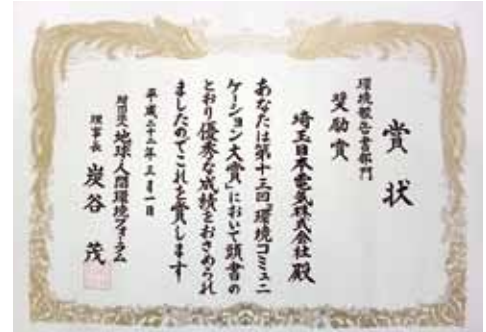 賞状
環境報告書部門
奨励賞
埼玉日本電気株式会社殿
あなたは第十三回「環境コミュニ
ケーション大賞」において頭書の
とおり優秀な成績をおさめられ
ましたのでこれを賞します
平成二十二年三月一日
財団法人地球人間環境フォーラム
理事長 炭谷茂